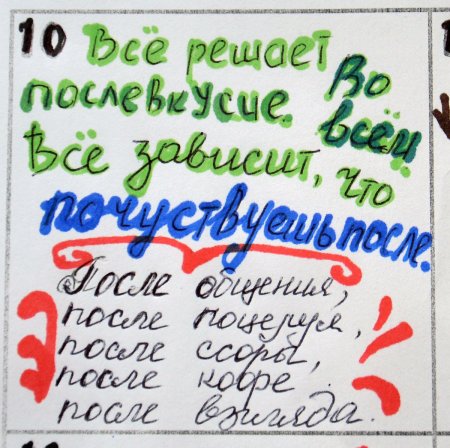 10 Всё решает
послевкусие. Во всём.
Всё зависит, что
почуствуешь после.
После общения,
после поцелуя,
после ссоры,
после кофе
после взгляда.